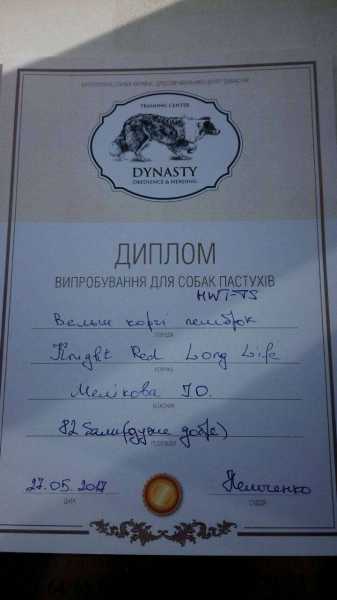 TRAINING CENTER
DYNASTY
OBEDIENCE & HERDING
ДИПЛОМ
ВИПРОБУВАННЯ ДЛЯ СОБАК ПАСТУХІВ
HWT-TS
Вельш коргі пемброк
ПОРОДА
Knight Red Long Life
КЛИЧКА
Мелікова Ю.
ВЛАСНИК
82 бали (дуже добре)
РЕЗУЛЬТАТ
27.05.2017
ДАТА
СУДДЯ